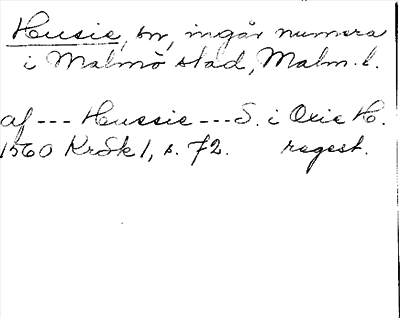 Husie, sn, ingår numera
i Malmö stad, Malm. l.
af --- Hussie --- S. i Oxie H.
1560 KrSk 1, s. 72. regest.